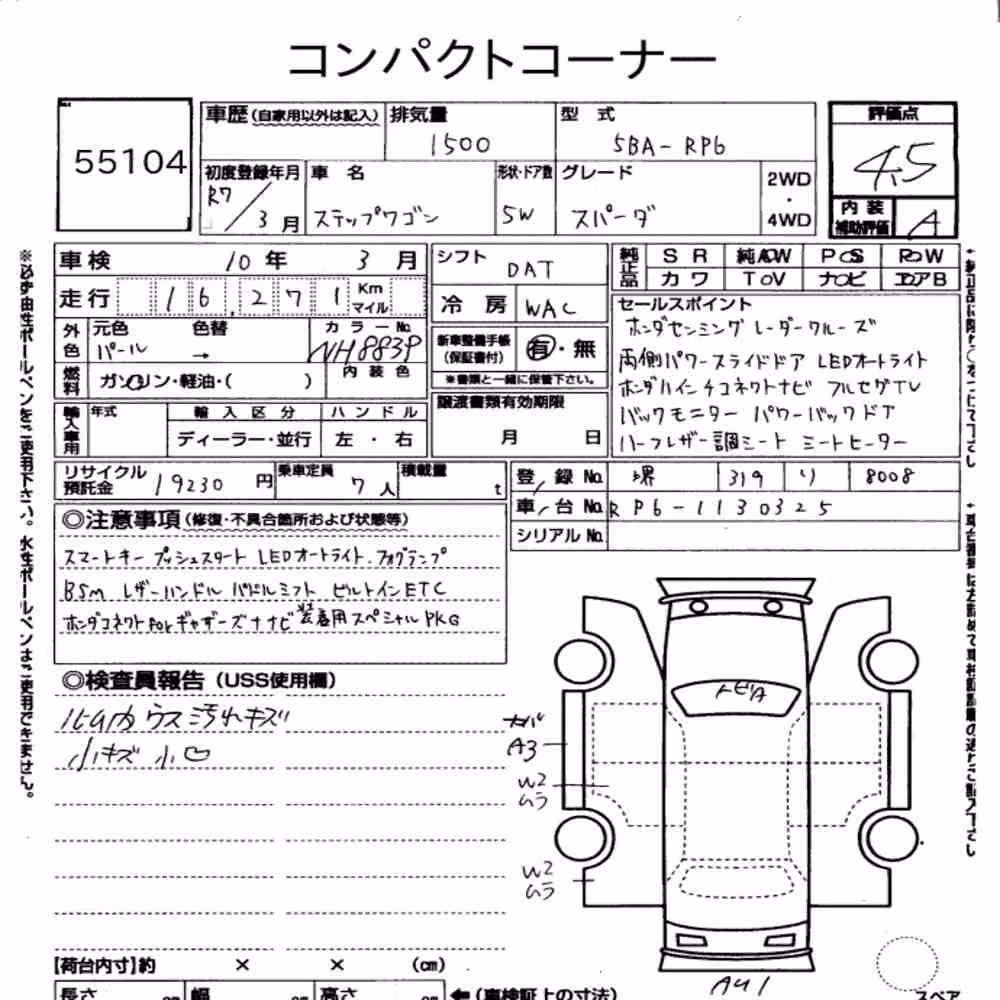 コンパクトコーナー
55104
車歴(自家用以外は記入)
排気量
1500
型 式
5BA-RP6
評価点
4.5
初度登録年月
R7/3月
車 名
ステップワゴン
形状・ドア数
5W
グレード
スパーダ
2WD
・
4WD
内装
補助評価
A
車検 10年 3月
走行 16,271 Km マイル
シフト
DAT
冷房
WAC
純正品
SR 純AW PS RW
カワ TV ナビ エアB
外色
元色 色替
パール →
カラーNo.
NH883P
内装色
燃料
ガソリン・軽油・( )
新車整備手帳
(保証書付)
有・無
※書類と一緒に保管下さい。
セールスポイント
ホンダセンシング レーダークルーズ
両側パワースライドドア LEDオートライト
ホンダ11インチコネクトナビ フルセグTV
バックモニター パワーバックドア
ハーフレザー調シート シートヒーター
輸入車用
年式
輸入区分
ディーラー・並行
ハンドル
左・右
譲渡書類有効期限
月 日
リサイクル
預託金
19230円
乗車定員
7人
積載量
t
登録No.
堺 319 り 8008
車台No.
RP6-1130325
シリアルNo.
◎注意事項(修復・不具合箇所および状態等)
スマートキー プッシュスタート LEDオートライト.フォグランプ
BSM レザーハンドル パドルシフト ビルトインETC
ホンダコネクトforギャザーズナビ装着用スペシャルPKG
◎検査員報告(USS使用欄)
ウス汚れキズ
小キズ 小凹
トビA
A3
W2
ムラ
W2
ムラ
AU1
【荷台内寸】約 × × (cm)
長さ cm 幅 cm 高さ cm
←(車検証上の寸法)
スペア
※必ず油性ボールペンをご使用下さい。水性ボールペンはご使用できません。